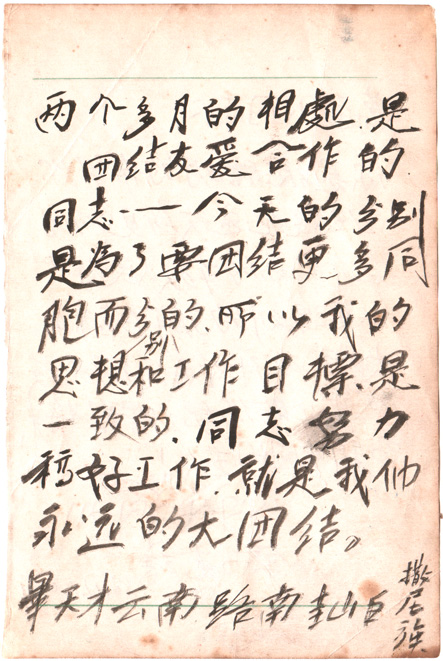 两个多月的相處.是
团结友爱合作的
同志——今天的分别
是为了要团结更多同
胞而分别的.所以我的
思想和工作目标.是
一致的.同志努力
搞好工作.就是我们
永远的大团结。
畢天才云南路南圭山区
撒尼族